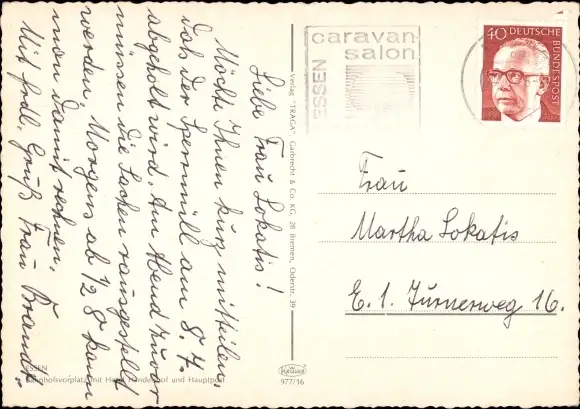 Liebe Frau Lokatis!
Möchte Ihnen kurz mitteilen,
daß der Sperrmüll am 8.7.
abgeholt wird. Am Abend zuvor
müssen die Sachen rausgestellt
werden. Morgens ab 1/2 8 kann
man damit rechnen.
Mit frdl. Gruß Frau Brandt.
ESSEN
Bahnhofsvorplatz mit Hotel Handelshof und Hauptpost
Verlag "TRACA", Garbrecht & Co. KG, 28 Bremen, Oderstr. 39
977/16
caravan
salon
ESSEN
40 DEUTSCHE
BUNDESPOST
Frau
Martha Lokatis
E. 1. Turnerweg 16.